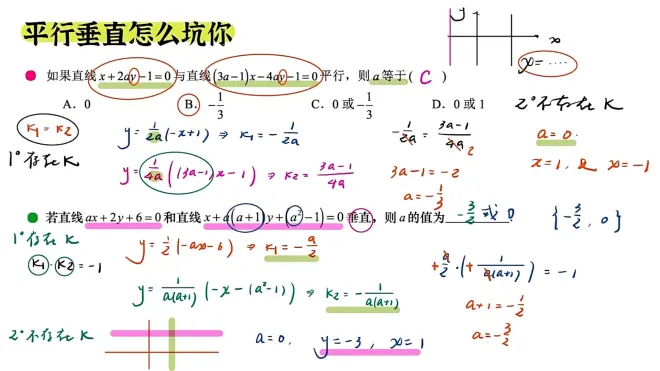 平行垂直怎么坑你
y
x
x=……
如果直线x+2ay−1=0与直线(3a−1)x−4ay−1=0平行，则a等于( C )
A. 0 B. −1/3 C. 0或−1/3 D. 0或1
K₁=K₂
1°存在K
y=1/2a(−x+1) ⇒ K₁=−1/2a
y=1/4a((3a−1)x−1) ⇒ K₂=3a−1/4a
−1/2a=3a−1/4a
3a−1=−2
a=−1/3
2°不存在K
a=0.
x=1, x=−1
若直线ax+2y+6=0和直线x+a(a+1)y+(a²−1)=0垂直，则a的值为 −3/2或0
{−3/2, 0}
1°存在K
K₁·K₂=−1
y=1/2(−ax−6) ⇒ K₁=−a/2
y=1/a(a+1)(−x−(a²−1)) ⇒ K₂=−1/a(a+1)
+a/2·(+1/a(a+1))=−1
a+1=−1/2
a=−3/2
2°不存在K
a=0. y=−3, x=1